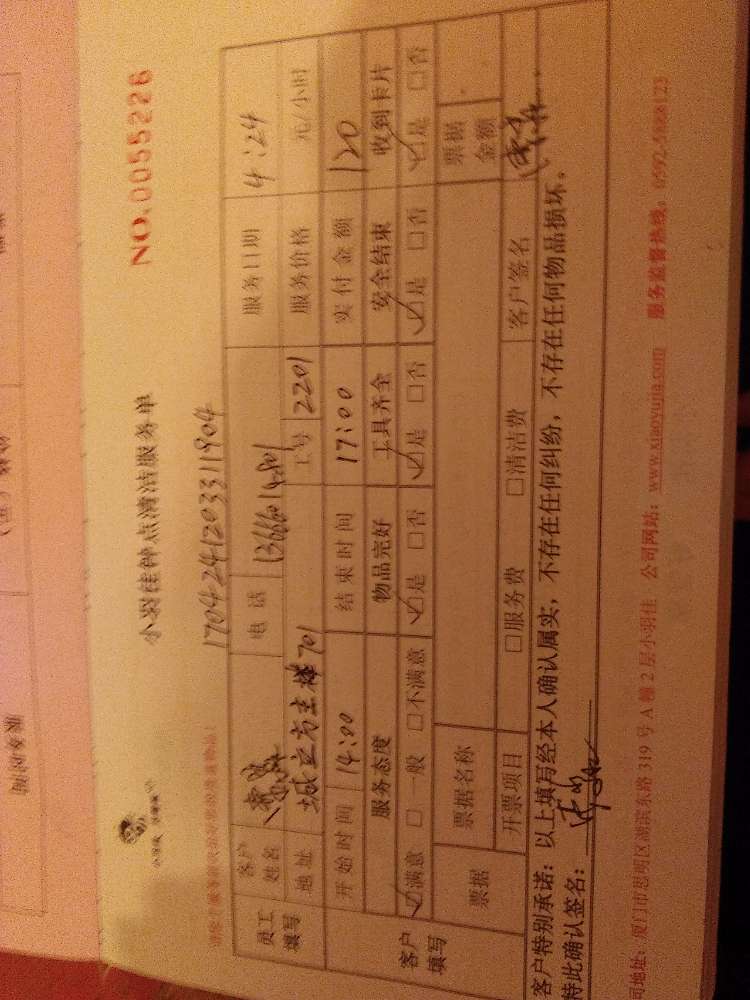 NO.0055226
小羽佳钟点清洁服务单
170424120331904
员工填写 客户姓名 电话 服务日期 4:24
地址 城立方主楼701 工号 2201 服务价格 元/小时
客户填写 开始时间 14:00 结束时间 17:00 实付金额 120
服务态度 物品完好 工具齐全 安全结束 收到卡片
☑满意 □一般 □不满意 ☑是 □否 ☑是 □否 ☑是 □否 ☑是 □否
票据 票据名称 票据金额
开票项目 □服务费 □清洁费 客户签名
客户特别承诺:以上填写经本人确认属实,不存在任何纠纷,不存在任何物品损坏。
特此确认签名:
司地址:厦门市思明区湖滨东路319号A幢2层小羽佳 公司网站:www.xiaoyujia.com 服务监督热线: